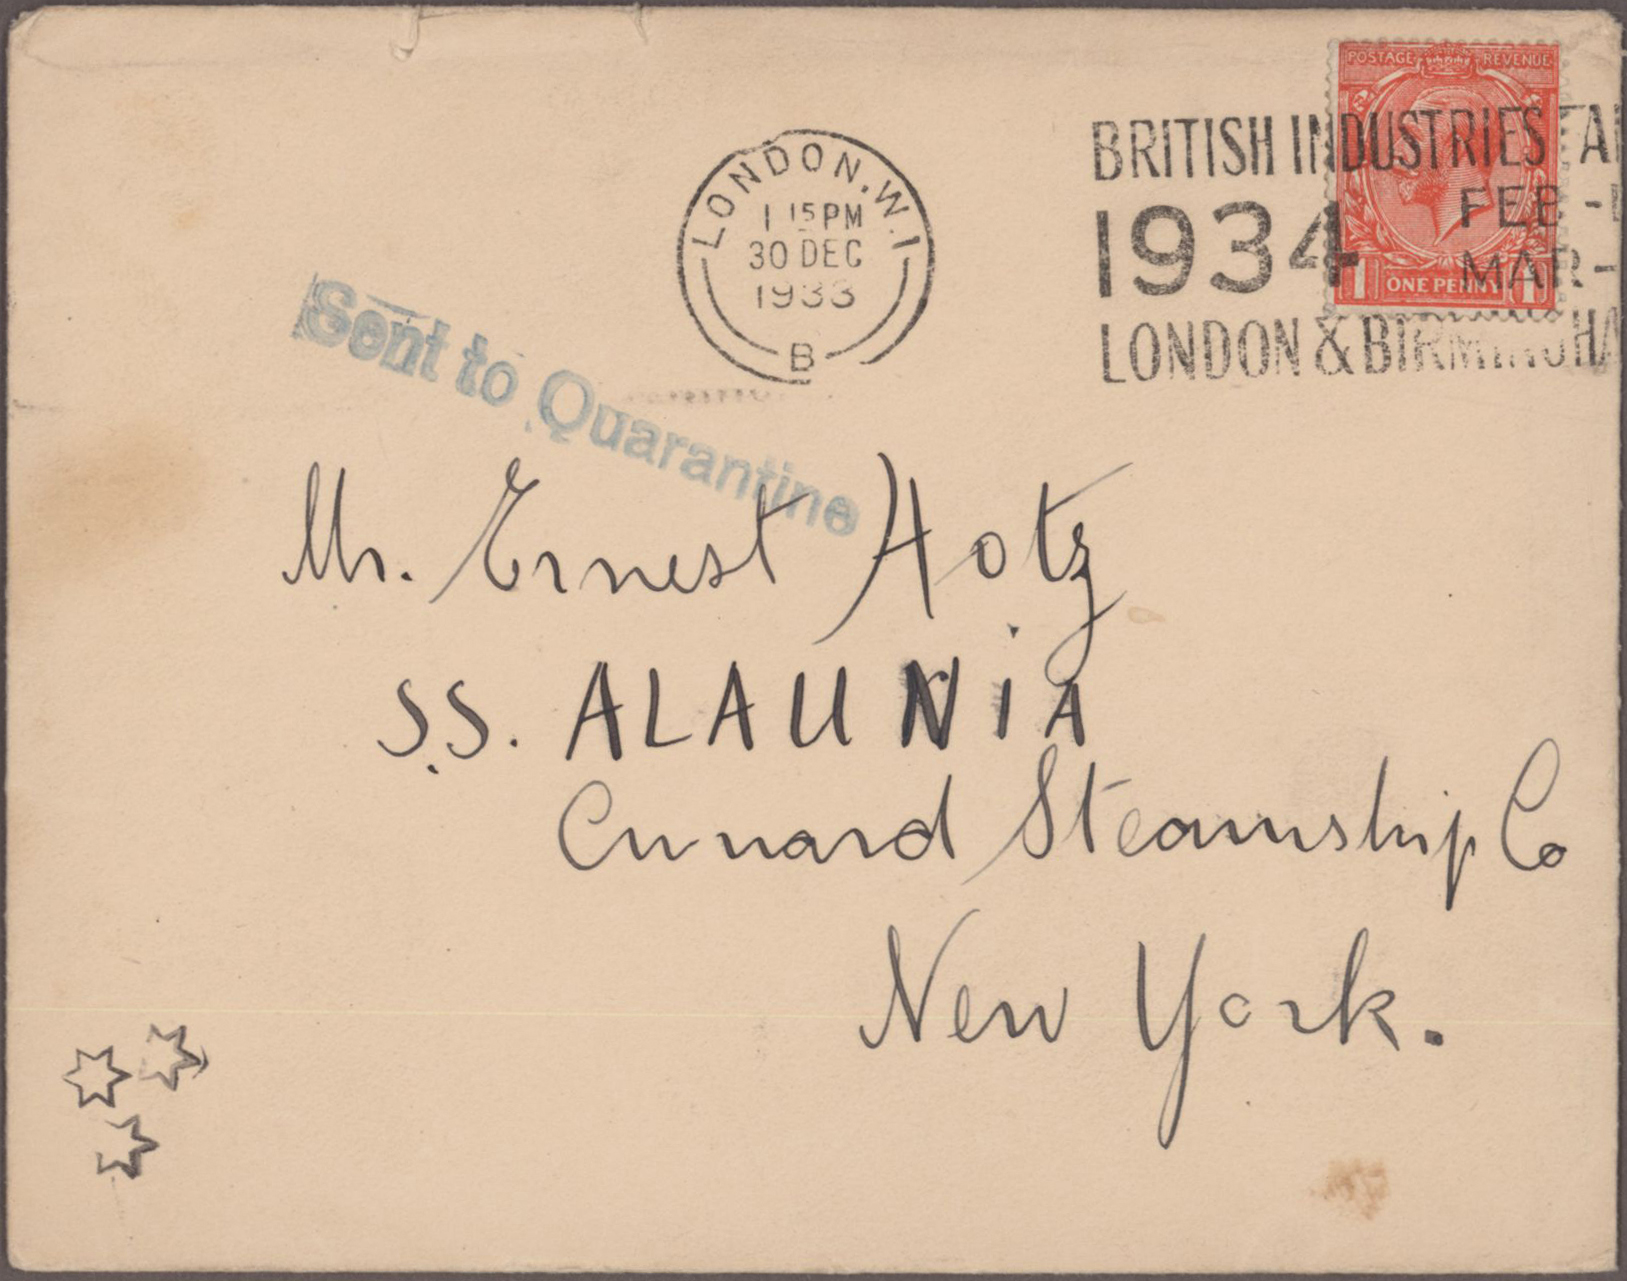 POSTAGE REVENUE
ONE PENNY
1 1
LONDON.W.1
1 15 PM
30 DEC
1933
B
BRITISH INDUSTRIES
1934 FEB -
MAR -
LONDON & BIRMINGHA
Sent to Quarantine
Mr. Ernest Hotz
S.S. ALAUNIA
Cunard Steamship Co
New York.